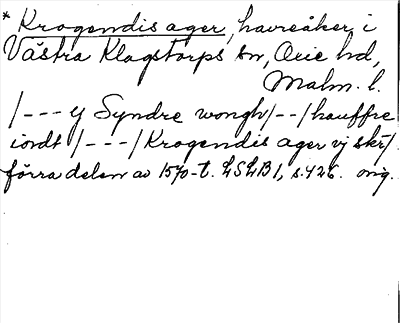 * Krogendis ager, havreåker i
Västra Klagstorps sn, Oxie hd,
Malm. l.
/---y Syndre wongh/--/hauffre
iordt/---/Krogendis ager vj skr/
förra delen av 1570-t. LSLB 1, s. 426. orig.